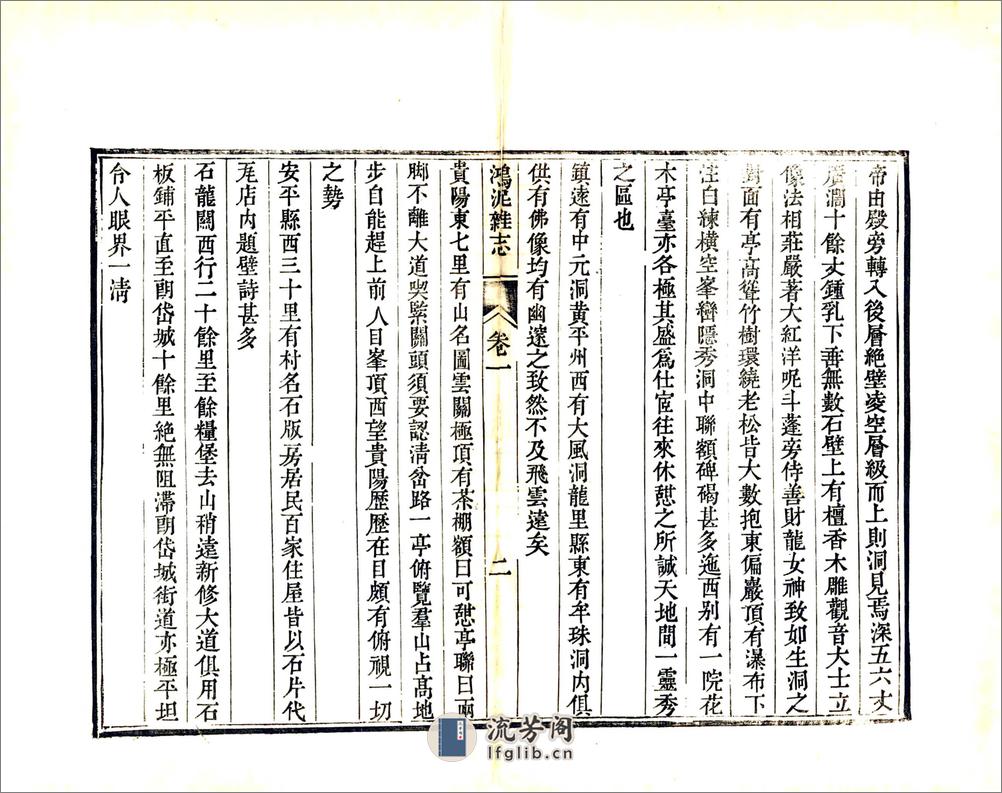 帝由殿旁轉入後層絶壁凌空層級而上則洞見焉深五六丈
廣濶十餘丈鍾乳下垂無數石壁上有檀香木雕觀音大士立
像法相莊嚴著大紅洋呢斗蓬旁侍善財龍女神致如生洞之
對面有亭高聳竹樹環繞老松皆大數抱東偏巖頂有瀑布下
注白練橫空峯巒隱秀洞中聯額碑碣甚多迤西别有一院花
木亭臺亦各極其盛爲仕宦往來休憇之所誠天地間一靈秀
之區也
鎮遠有中元洞黄平州西有大風洞龍里縣東有牟珠洞内俱
供有佛像均有幽邃之致然不及飛雲遠矣
鴻泥雜志 卷一 二
貴陽東七里有山名圖雲關極頂有茶棚額曰可憇亭聯曰兩
脚不離大道喫緊關頭須要認淸岔路一亭俯覽羣山占高地
步自能趕上前人目峯頂西望貴陽歷歷在目頗有俯視一切
之勢
安平縣西三十里有村名石版房居民百家住屋皆以石片代
瓦店内題壁詩甚多
石龍關西行二十餘里至餘糧堡去山稍遠新修大道俱用石
板鋪平直至郎岱城十餘里絶無阻滯郎岱城街道亦極平坦
令人眼界一淸
流芳阁
lfglib.cn